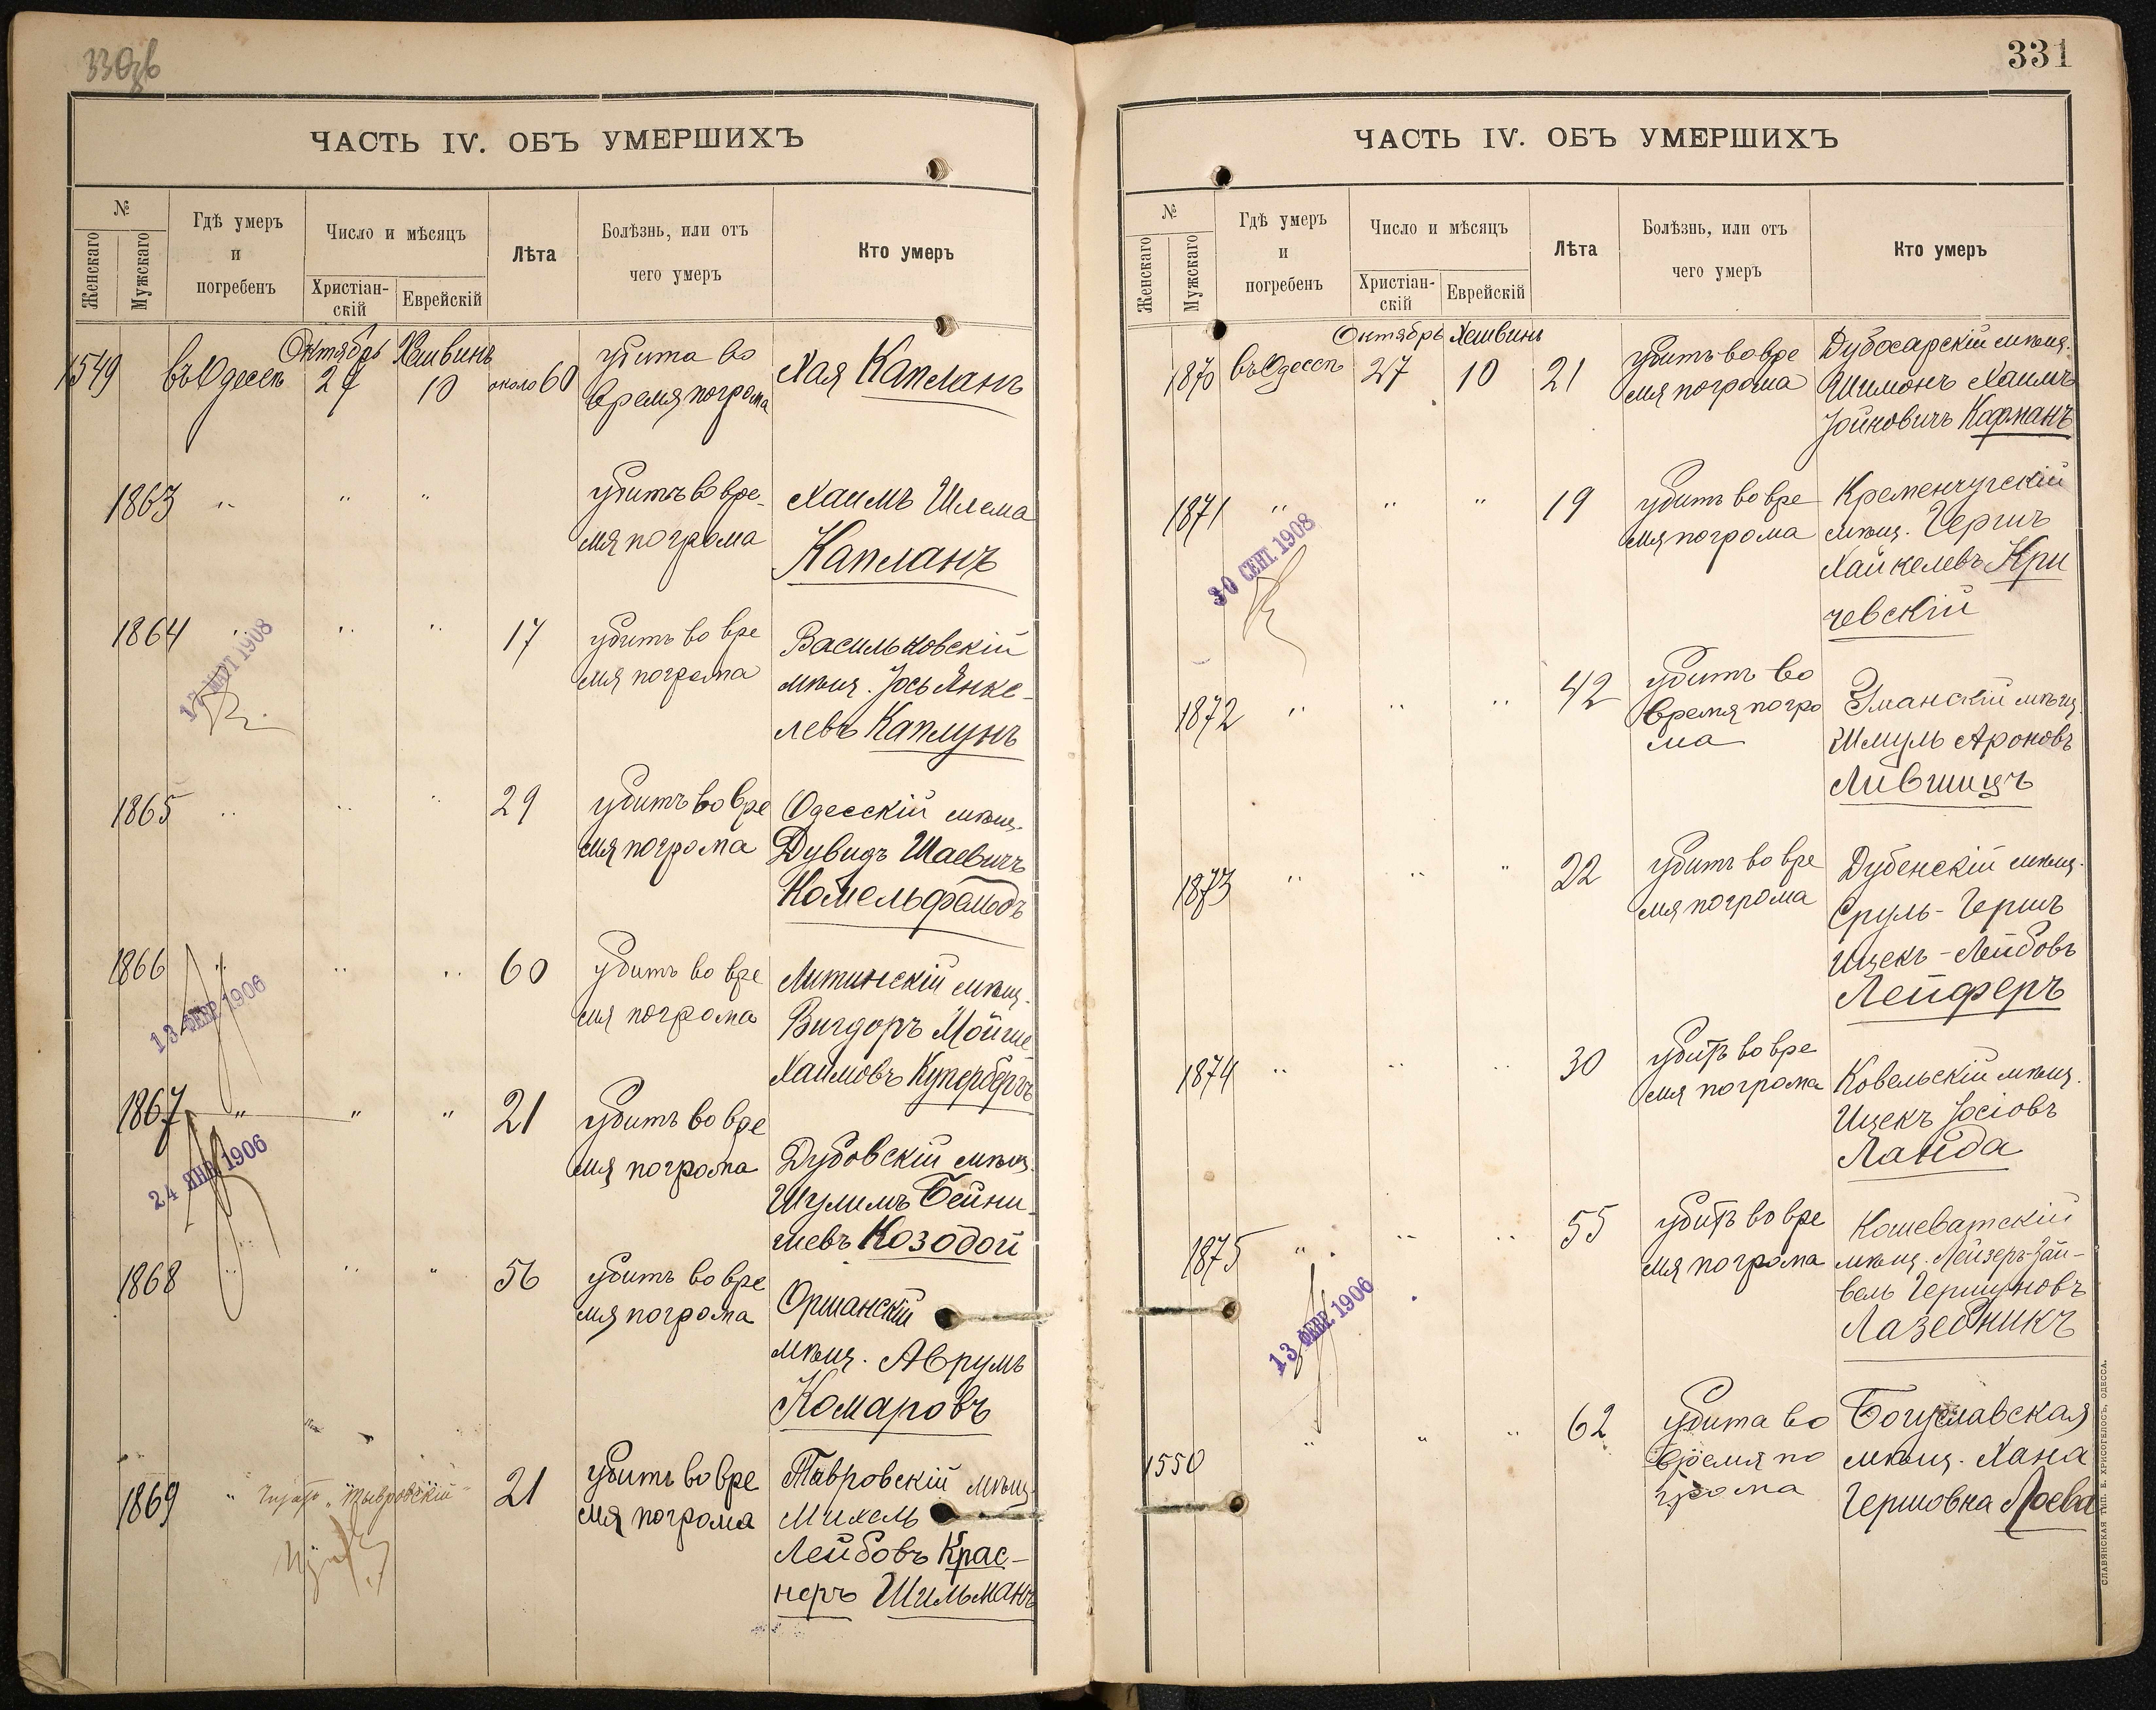 330 об
ЧАСТЬ IV. ОБЪ УМЕРШИХЪ
№
Женскаго
Мужскаго
Гдѣ умеръ
и
погребенъ
Число и мѣсяцъ
Христіан-
скій
Еврейскій
Лѣта
Болѣзнь, или отъ
чего умеръ
Кто умеръ
Октябрь Хешвинъ
1549 въ Одессѣ 27 10 около 60 убита во
время погрома
Хая Капланъ
1863 " " " убитъ во вре-
мя погрома
Хаимъ Шлема
Капланъ
1864 " " " 17 убитъ во вре
мя погрома
Васильковскій
мѣщ. Іось Янке-
левъ Каплунъ
17 МАРТ 1908
1865 " " " 29 убитъ во вре
мя погрома
Одесскій мѣщ.
Дувидъ Шаевичъ
Комельфельдъ
1866 " " " 60 убитъ во вре
мя погрома
Литинскій мѣщ.
Вигдоръ Мойше
Хаимовъ Купербергъ
13 ФЕВР 1906
1867 " " " 21 убитъ во вре
мя погрома
Дубовскій мѣщ.
Шулимъ Бейни-
шевъ Козодой
24 ЯНВ 1906
1868 " " " 56 убитъ во вре
мя погрома
Оршанскій
мѣщ. Аврумъ
Комаровъ
1869 " "Тывровскій" 21 убитъ во вре
мя погрома
Тавровскій мѣщ.
Михель
Лейбовъ Крас-
неръ Шильманъ
331
ЧАСТЬ IV. ОБЪ УМЕРШИХЪ
№
Женскаго
Мужскаго
Гдѣ умеръ
и
погребенъ
Число и мѣсяцъ
Христіан-
скій
Еврейскій
Лѣта
Болѣзнь, или отъ
чего умеръ
Кто умеръ
Октябрь Хешвинъ
1870 въ Одессѣ 27 10 21 убитъ во вре
мя погрома
Дубосарскій мѣщ.
Шимонъ Хаимъ
Іойновичъ Кофманъ
1871 " " " 19 убитъ во вре
мя погрома
Кременчугскій
мѣщ. Гершъ
Хайкелевъ Кри
чевскій
30 СЕНТ. 1908
1872 " " " 42 убитъ во
время погро
ма
Уманскій мѣщ.
Шмуль Ароновъ
Лившицъ
1873 " " " 22 убитъ во вре
мя погрома
Дубенскій мѣщ.
Сруль-Гершъ
Ицекъ-Лейбовъ
Лейферъ
1874 " " " 30 убитъ во вре
мя погрома
Ковельскій мѣщ.
Ицекъ Іосіовъ
Ланда
1875 " " " 55 убитъ во вре
мя погрома
Кошеватскій
мѣщ. Лейзеръ-Зай-
вель Гершуновъ
Лазебникъ
13 ФЕВР. 1906
1550 " " " 62 убита во
время по
грома
Богуславская
мѣщ. Хана
Гершовна Лоева
СЛАВЯНСКАЯ ТИП. Е. ХРИСОГЕЛОСЪ, ОДЕССА.